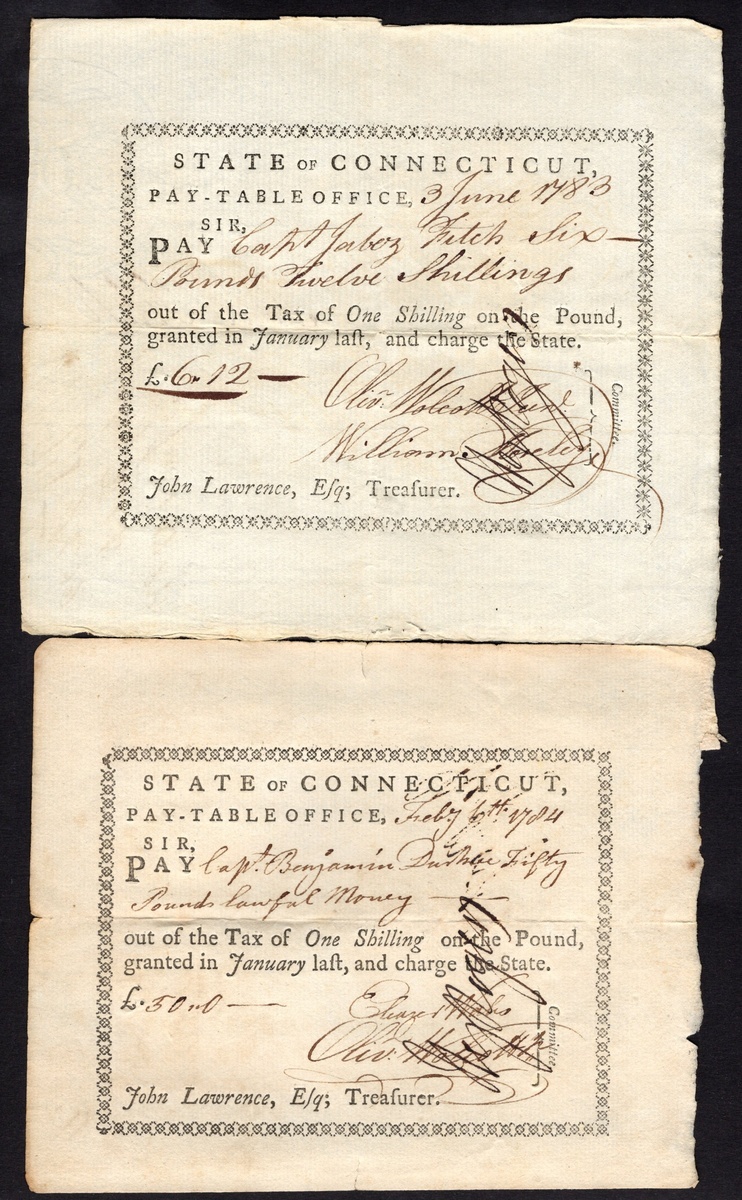 STATE OF CONNECTICUT,
PAY-TABLE OFFICE, 3 June 1783
SIR,
PAY Capt Jabez Fitch Six
Pounds Twelve Shillings
out of the Tax of One Shilling on the Pound,
granted in January laſt, and charge the State.
£. 6. 12
Olivr. Wolcott Junr.
William Moseley
Committee.
John Lawrence, Eſq; Treaſurer.
STATE OF CONNECTICUT,
PAY-TABLE OFFICE, Feby 6th. 1784
SIR,
PAY Capt. Benjamin Durkee Fifty
Pounds lawful Money
out of the Tax of One Shilling on the Pound,
granted in January laſt, and charge the State.
£. 50 " 0
Eleazer Wales
Olivr. Wolcott Jr
Committee
John Lawrence, Eſq; Treaſurer.